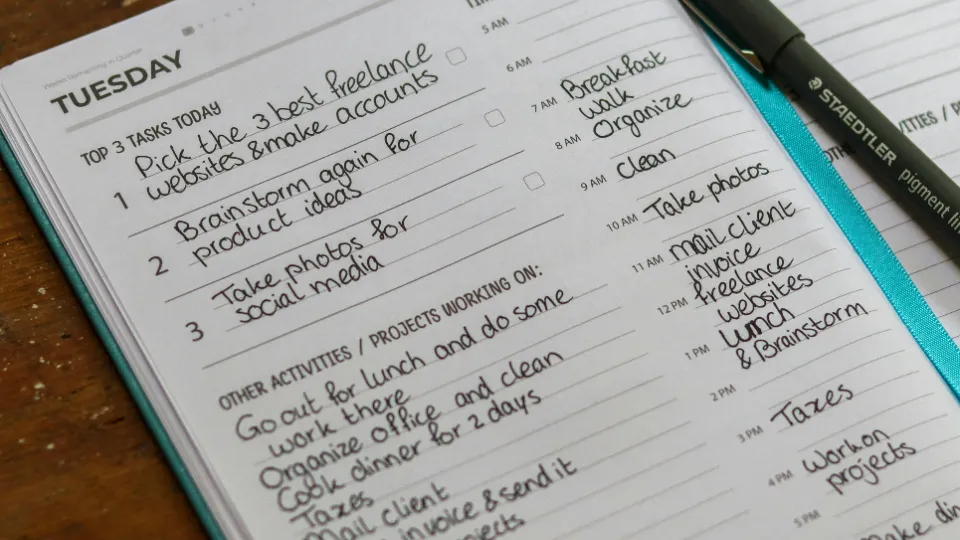 TUESDAY
TOP 3 TASKS TODAY
1
Pick the 3 best freelance
websites & make accounts
2
Brainstorm again for
product ideas
3
Take photos for
social media
OTHER ACTIVITIES / PROJECTS WORKING ON:
Go out for lunch and do some
work there
Organize office and clean
Cook dinner for 2 days
Taxes
Mail client
invoice & send it
5 AM
6 AM
7 AM Breakfast
walk
8 AM Organize
9 AM Clean
10 AM Take photos
11 AM mail client
invoice
12 PM freelance
websites
1 PM lunch
& Brainstorm
2 PM
3 PM Taxes
4 PM work on
projects
5 PM
Make
STAEDTLER pigment